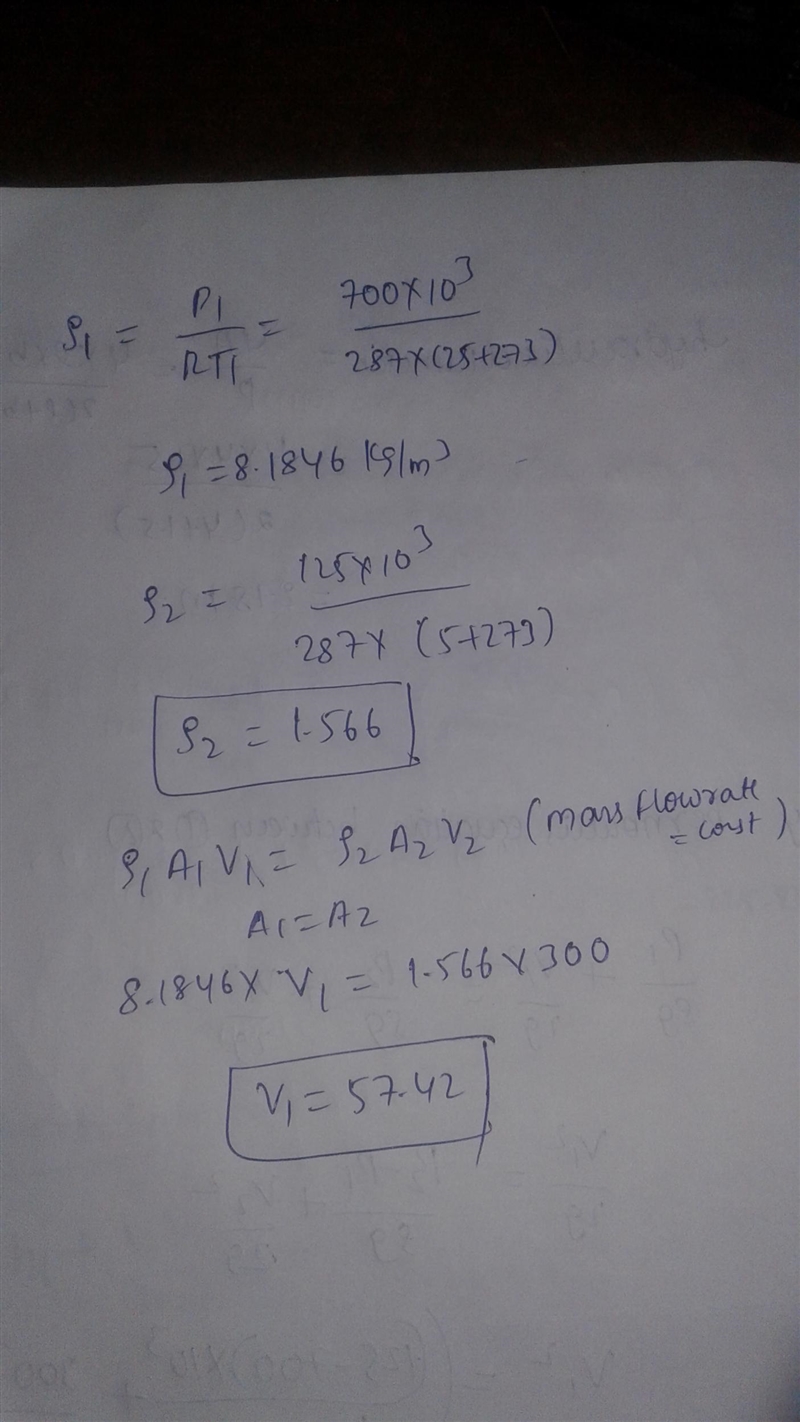 ρ₁ = P₁/RT₁ = 700×10³/287×(25+273)
ρ₁ = 8.1846 kg/m³
ρ₂ = 125×10³/287×(5+273)
ρ₂ = 1.566
ρ₁ A₁ V₁ = ρ₂ A₂ V₂ (mass flowrate = const)
A₁ = A₂
8.1846 × V₁ = 1.566 × 300
V₁ = 57.42